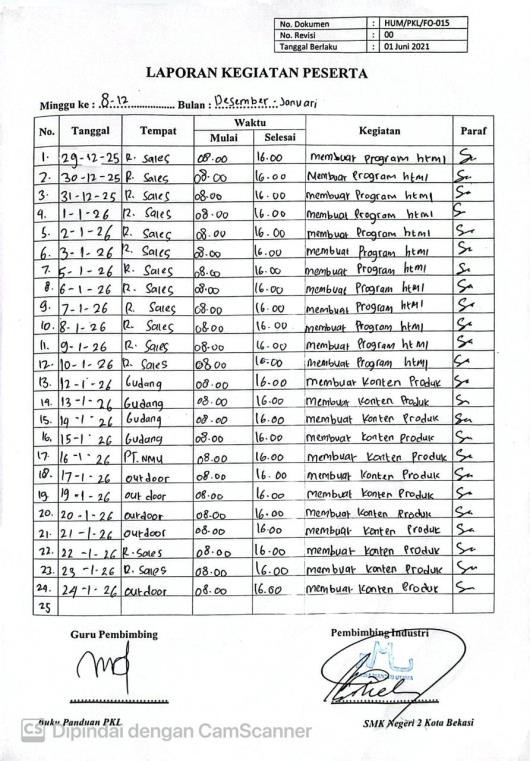 No. Dokumen : HUM/PKL/FO-015
No. Revisi : 00
Tanggal Berlaku : 01 Juni 2021
LAPORAN KEGIATAN PESERTA
Minggu ke : 8-12 Bulan : Desember - Januari
No. Tanggal Tempat Waktu Kegiatan Paraf
Mulai Selesai
1. 29-12-25 R. Sales 08.00 16.00 membuat Program html
2. 30-12-25 R. Sales 08.00 16.00 Membuat Program html
3. 31-12-25 R. Sales 08.00 16.00 membuat Program html
4. 1-1-26 R. Sales 08.00 16.00 membuat Program html
5. 2-1-26 R. Sales 08.00 16.00 membuat Program html
6. 3-1-26 R. Sales 08.00 16.00 membuat Program html
7. 5-1-26 R. Sales 08.00 16.00 membuat Program html
8. 6-1-26 R. Sales 08.00 16.00 membuat Program html
9. 7-1-26 R. Sales 08.00 16.00 membuat Program html
10. 8-1-26 R. Sales 08.00 16.00 membuat Program html
11. 9-1-26 R. Sales 08.00 16.00 membuat Program html
12. 10-1-26 R. Sales 08.00 16.00 membuat Program html
13. 12-1-26 Gudang 08.00 16.00 membuat Konten Produk
14. 13-1-26 Gudang 08.00 16.00 membuat Konten Produk
15. 14-1-26 Gudang 08.00 16.00 membuat Konten Produk
16. 15-1-26 Gudang 08.00 16.00 membuat Konten Produk
17. 16-1-26 PT.NMU 08.00 16.00 membuat Konten Produk
18. 17-1-26 outdoor 08.00 16.00 membuat Konten Produk
19. 19-1-26 outdoor 08.00 16.00 membuat Konten Produk
20. 20-1-26 outdoor 08.00 16.00 membuat Konten Produk
21. 21-1-26 outdoor 08.00 16.00 membuat Konten Produk
22. 22-1-26 R. Sales 08.00 16.00 membuat Konten Produk
23. 23-1-26 R. Sales 08.00 16.00 membuat Konten Produk
24. 24-1-26 outdoor 08.00 16.00 membuat Konten Produk
25
Guru Pembimbing Pembimbing Industri
Buku Panduan PKL SMK Negeri 2 Kota Bekasi
CS Dipindai dengan CamScanner